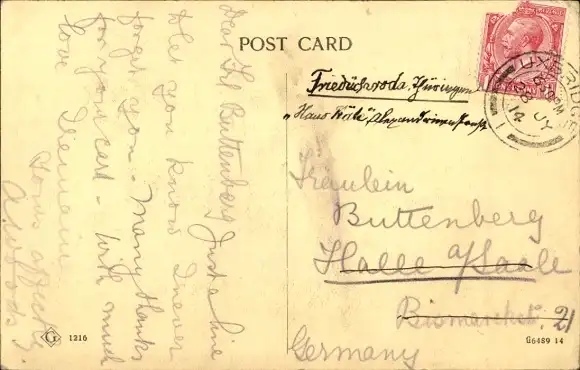 POST CARD
Dear Frl Buttenberg Just a line
to let you know I never
forget you - Many thanks
for your card - With much
love I remain
Yours affectly
A. Woods.
Friedrichroda, Thüringen
"Haus Käti", Alexandrinenstraße
Fräulein
Buttenberg
Halle a/Saale
Bismarckstr. 21
Germany
UXBRIDGE
8.30 PM
JY
14
G 1216
G6489 14